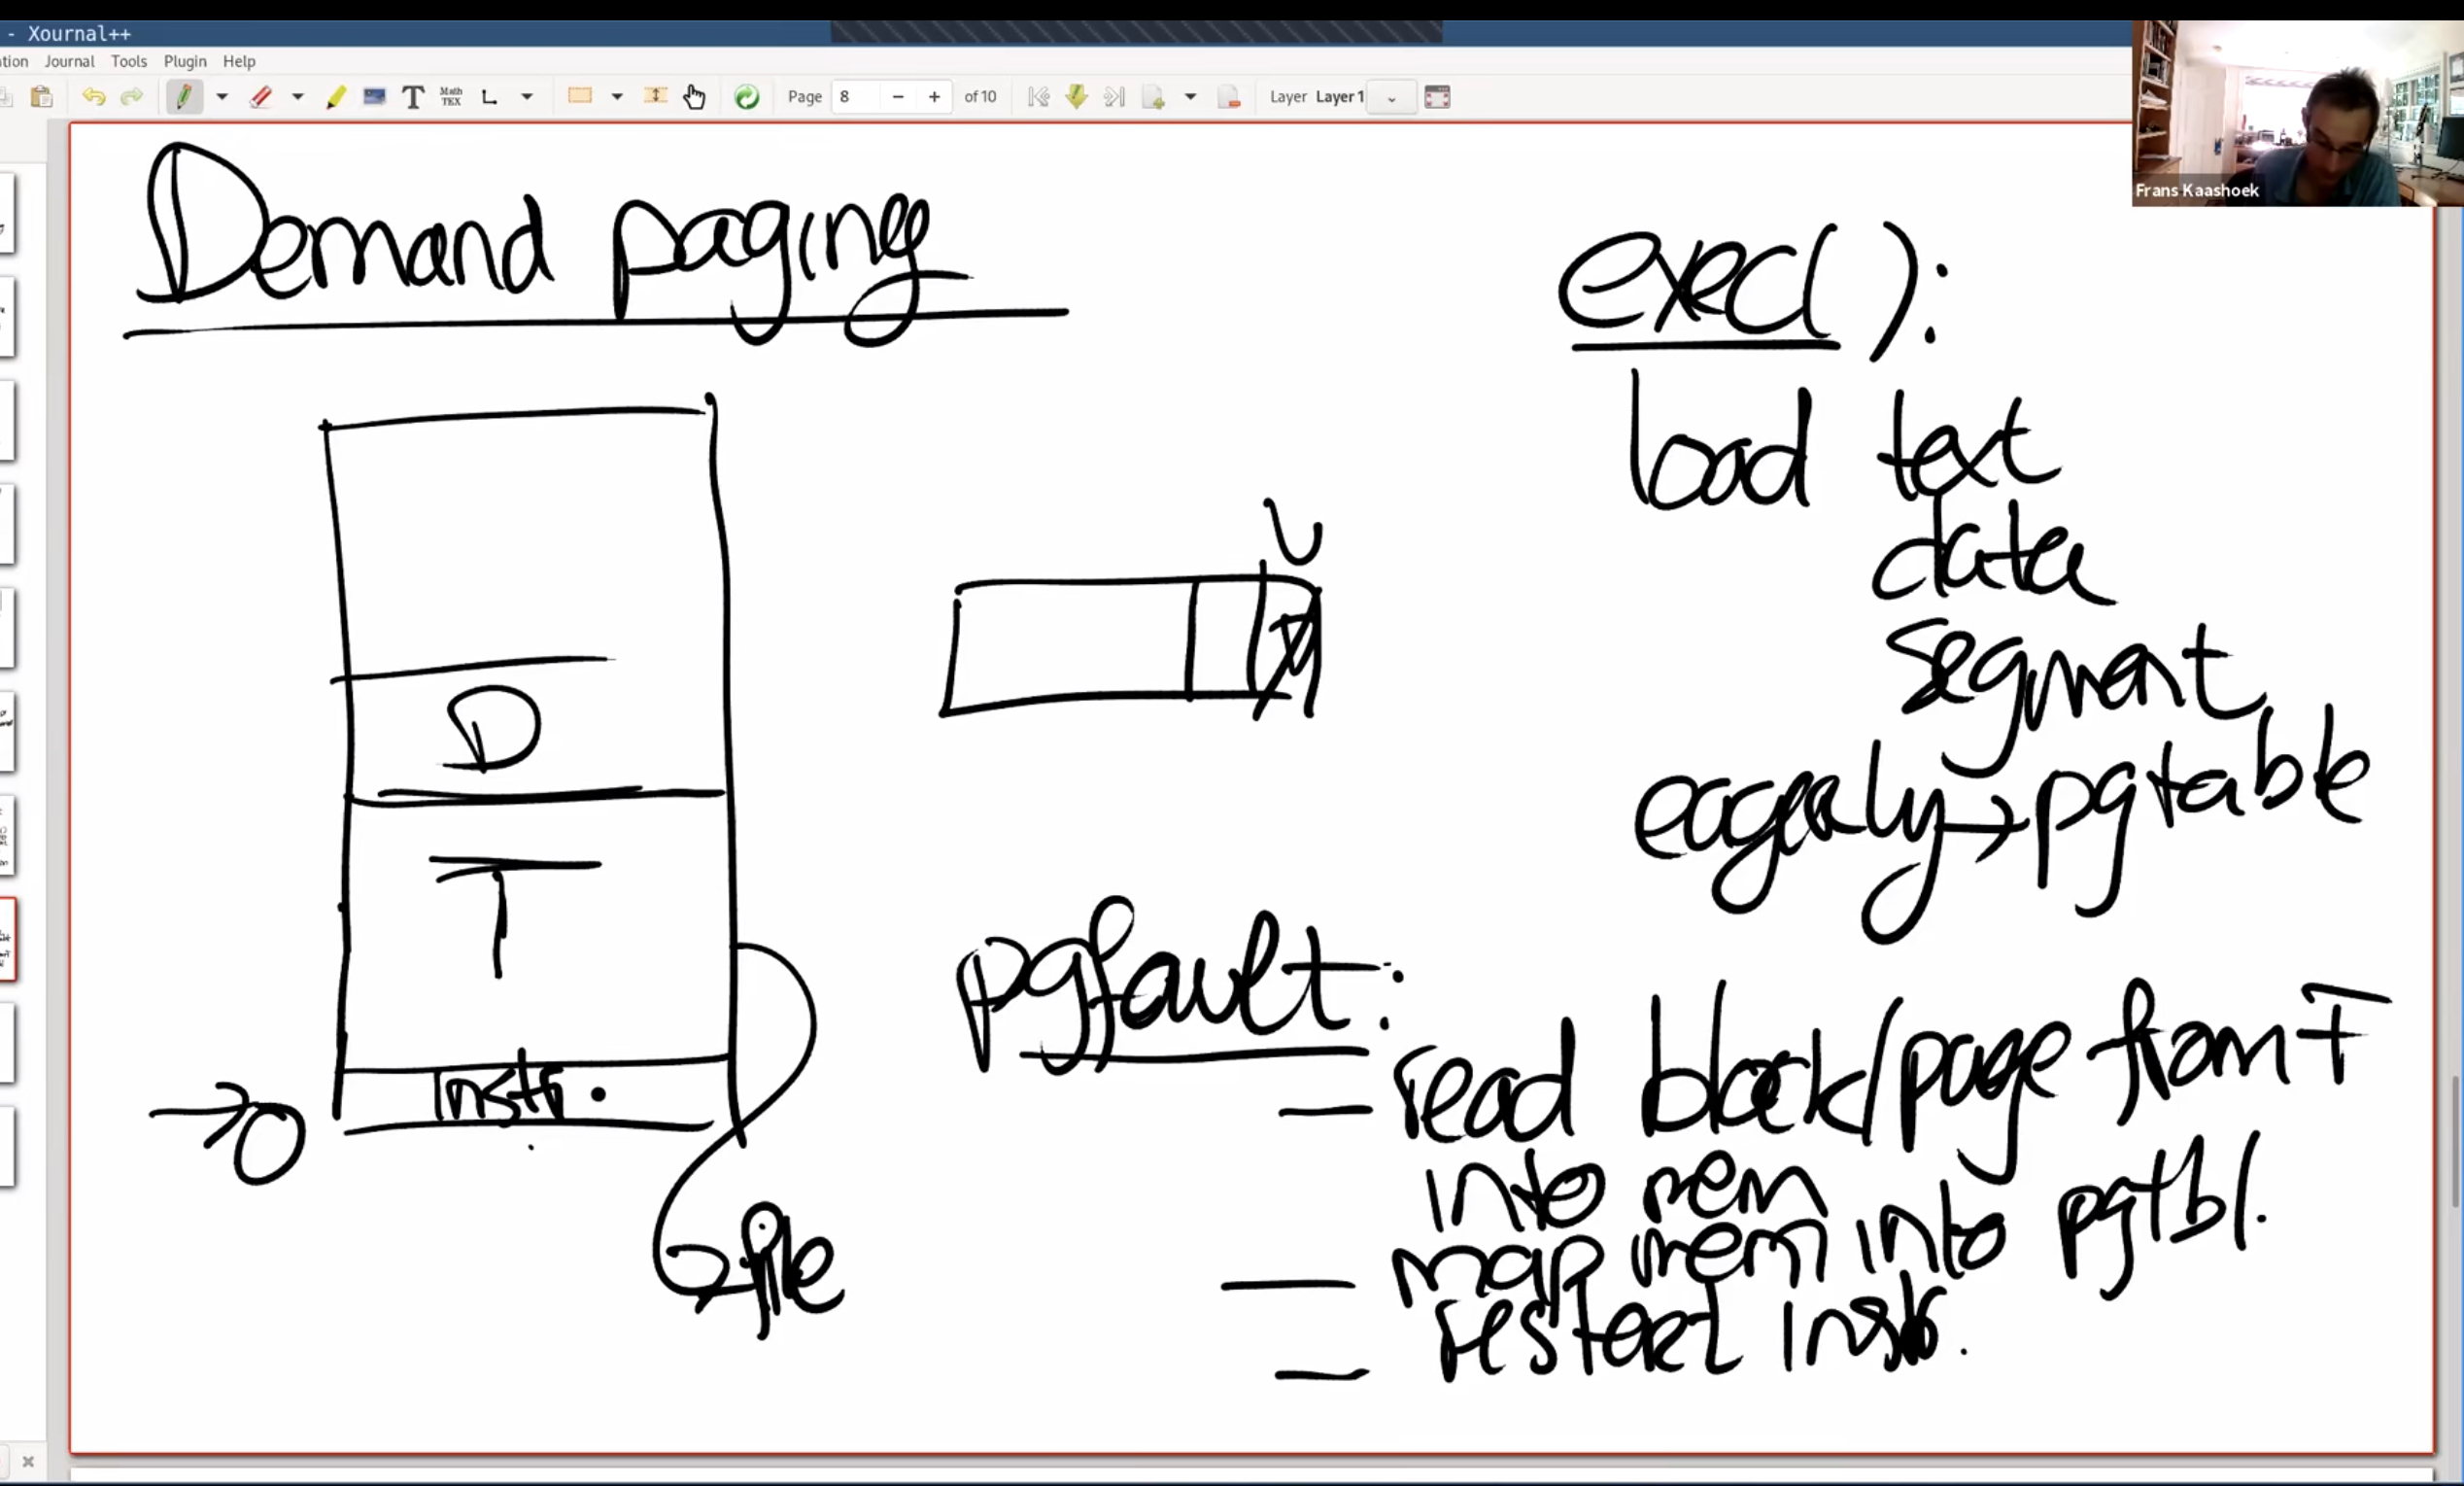 - Xournal++
tion Journal Tools Plugin Help
Page 8 of 10 Layer Layer 1
Frans Kaashoek
Demand paging
exec():
load text
data
segment
eagerly → pgtable
D
T
Instr.
→ 0
file
pgfault:
— read block/page from F
into mem
— map mem into pgtbl.
— restart instr.